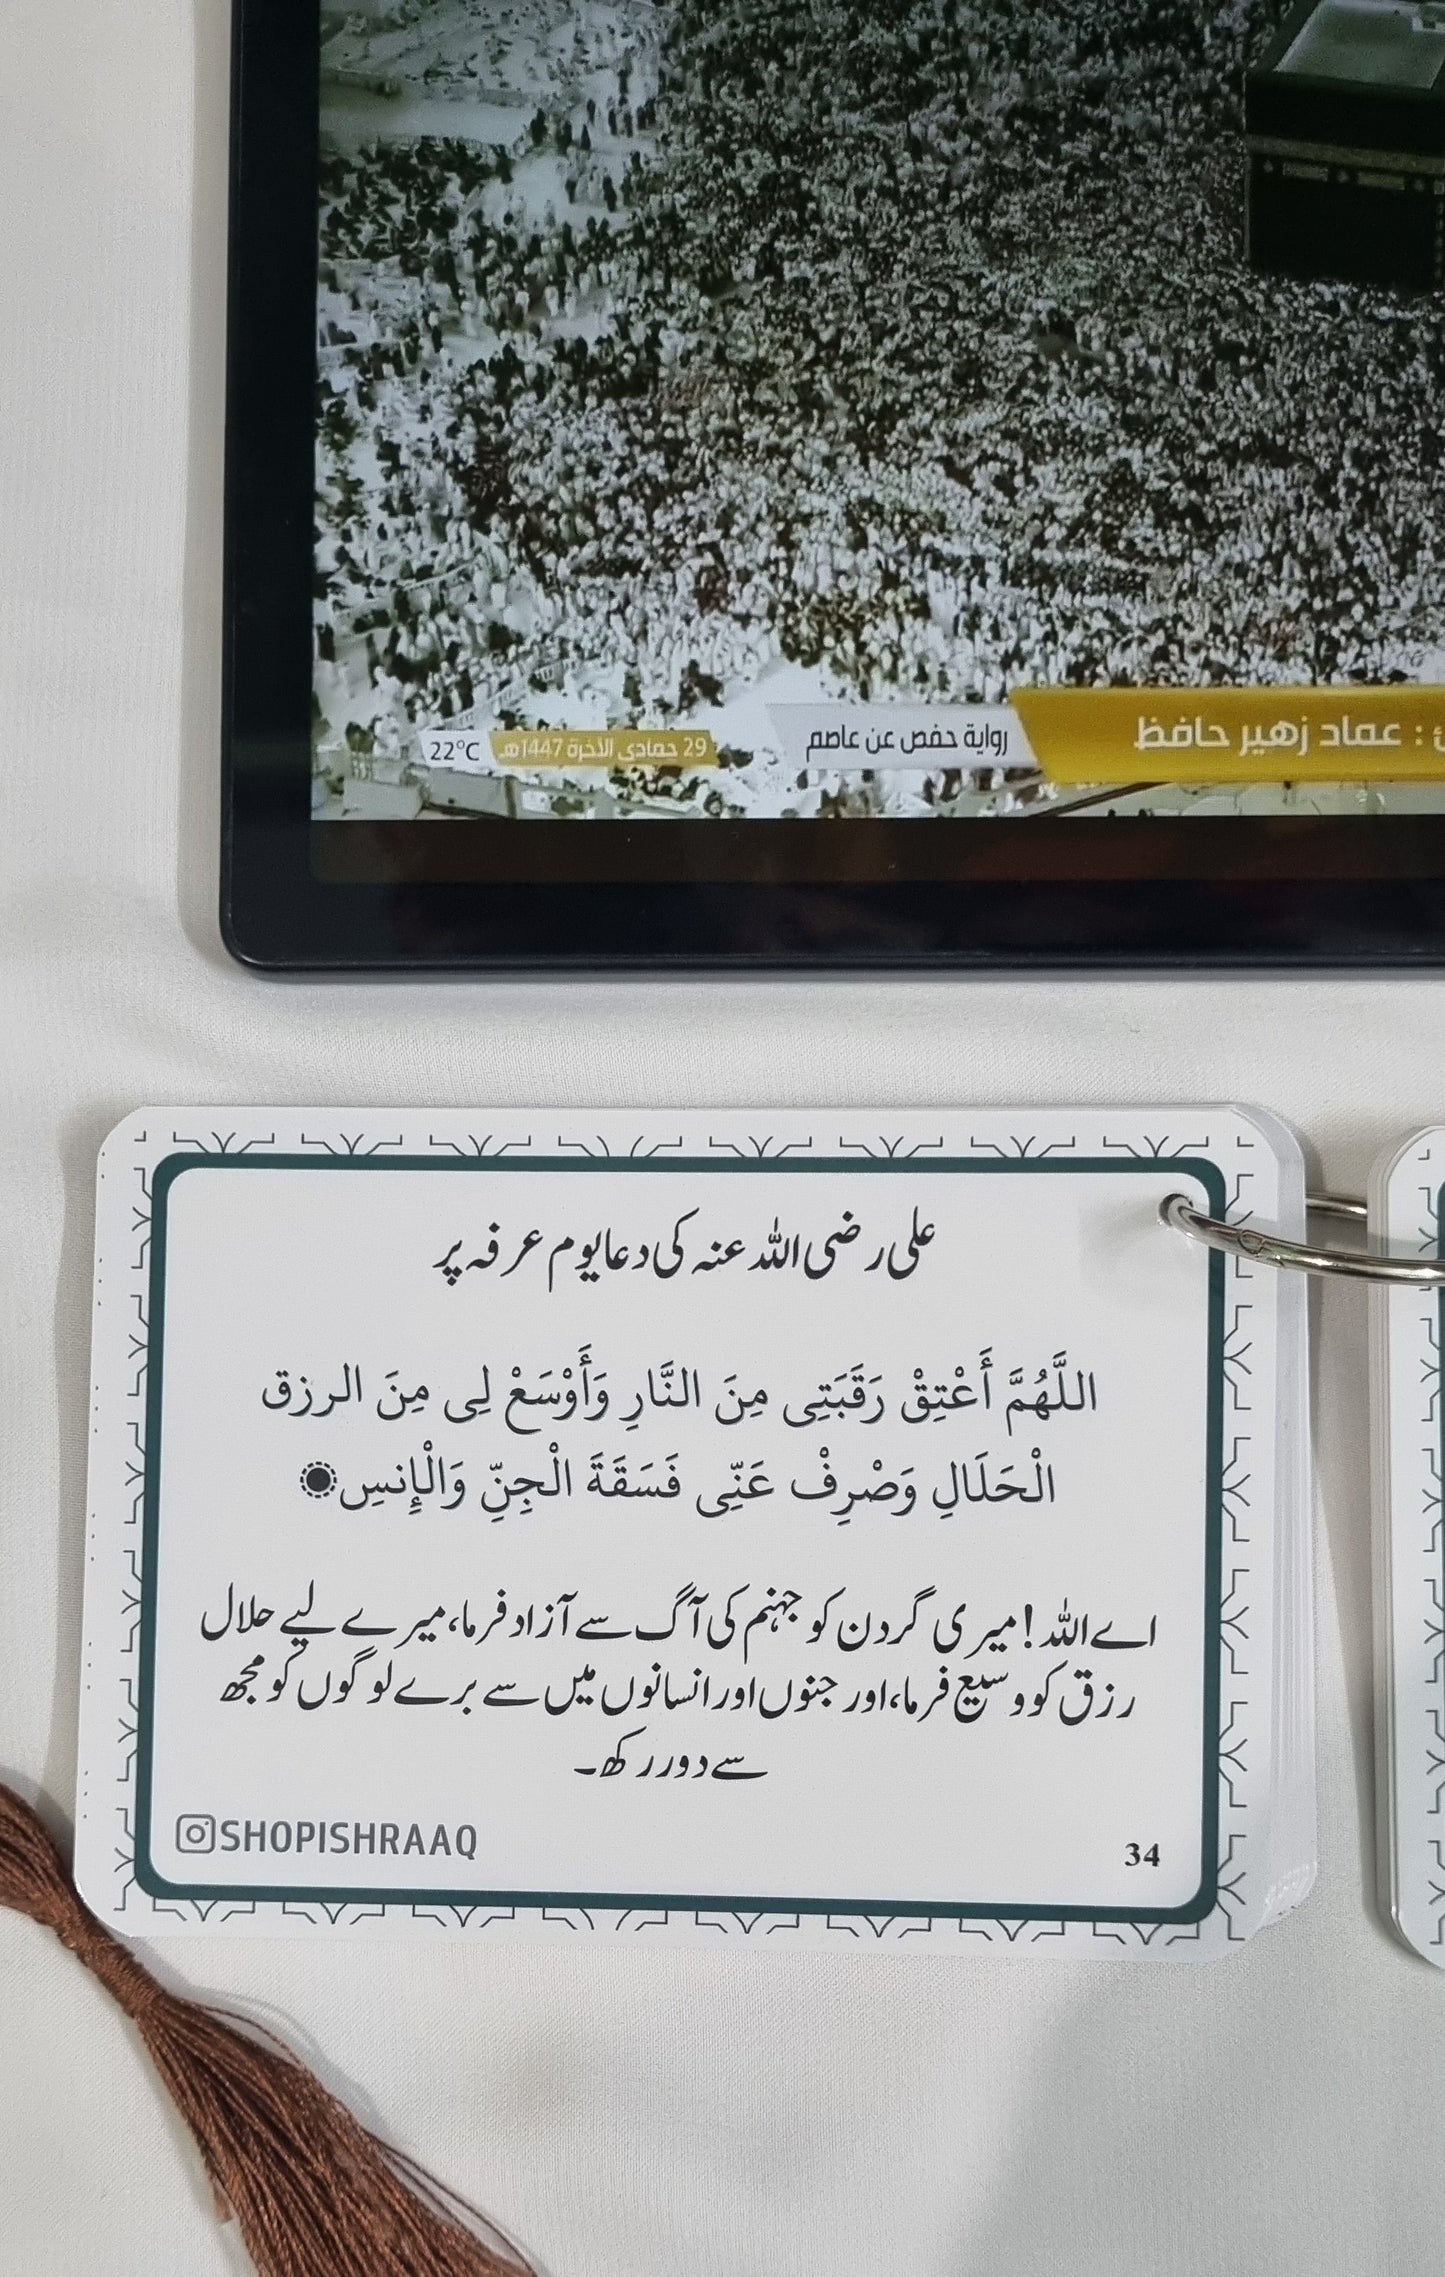 22°C
29 جمادى الآخرة 1447هـ
رواية حفص عن عاصم
: عماد زهير حافظ
علی رضی اللہ عنہ کی دعا یوم عرفہ پر
اللَّهُمَّ أَعْتِقْ رَقَبَتِى مِنَ النَّارِ وَأَوْسَعْ لِى مِنَ الرزق
الْحَلَالِ وَصْرِفْ عَنِّى فَسَقَةَ الْجِنِّ وَالْإِنسِ
اے اللہ! میری گردن کو جہنم کی آگ سے آزاد فرما، میرے لیے حلال
رزق کو وسیع فرما، اور جنوں اور انسانوں میں سے برے لوگوں کو مجھ
سے دور رکھ۔
SHOPISHRAAQ
34